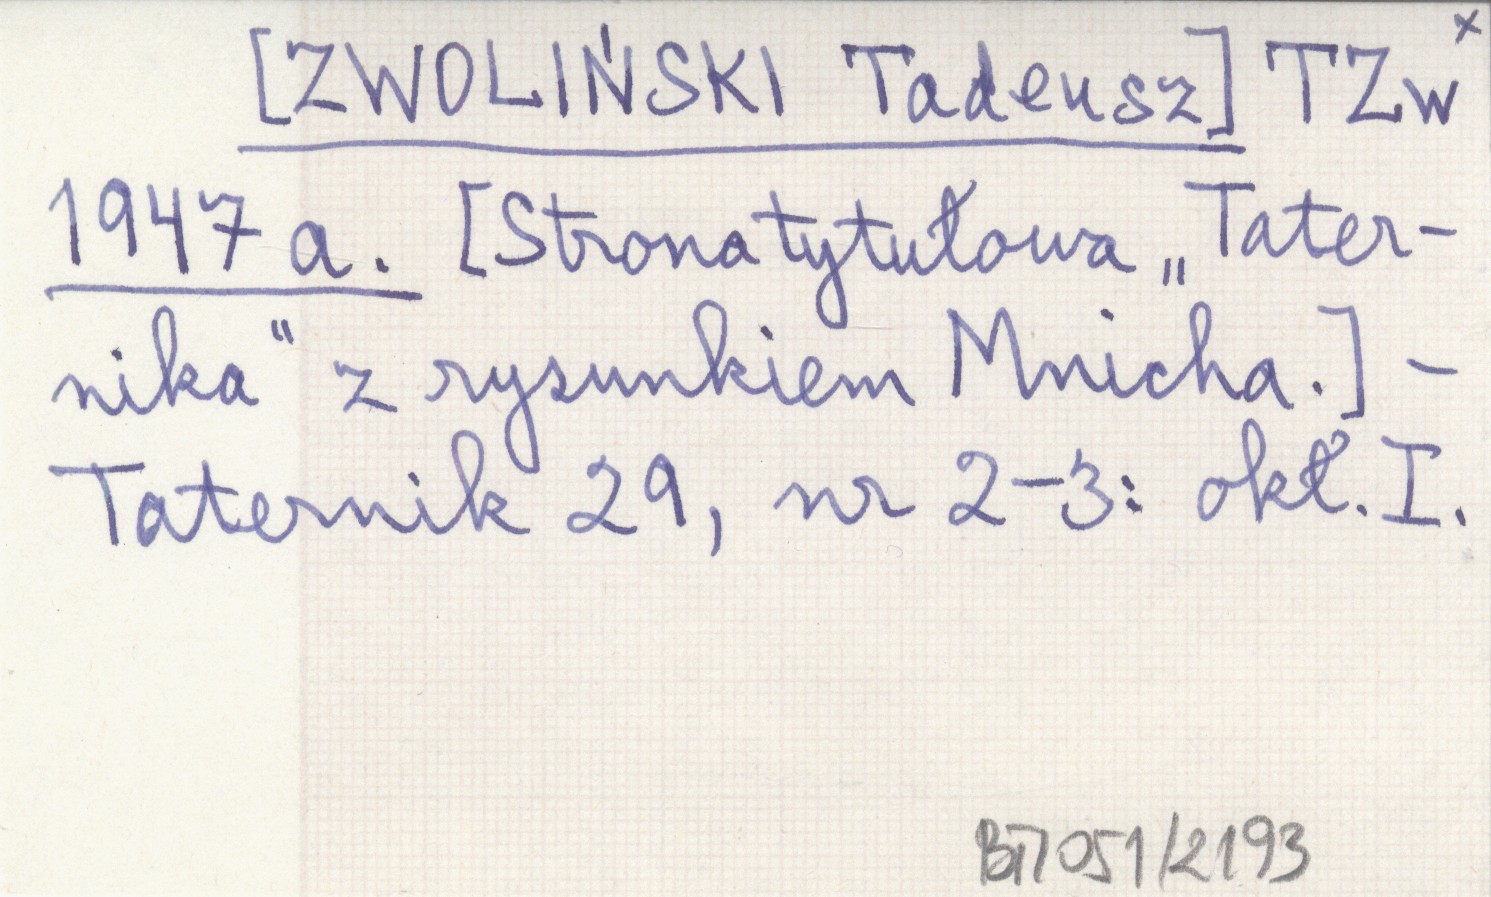 [ZWOLIŃSKI Tadeusz] TZw x
1947 a. [Strona tytułowa „Tater-
nika" z rysunkiem Mnicha.] -
Taternik 29, nr 2-3: okł. I.
B17051/2193